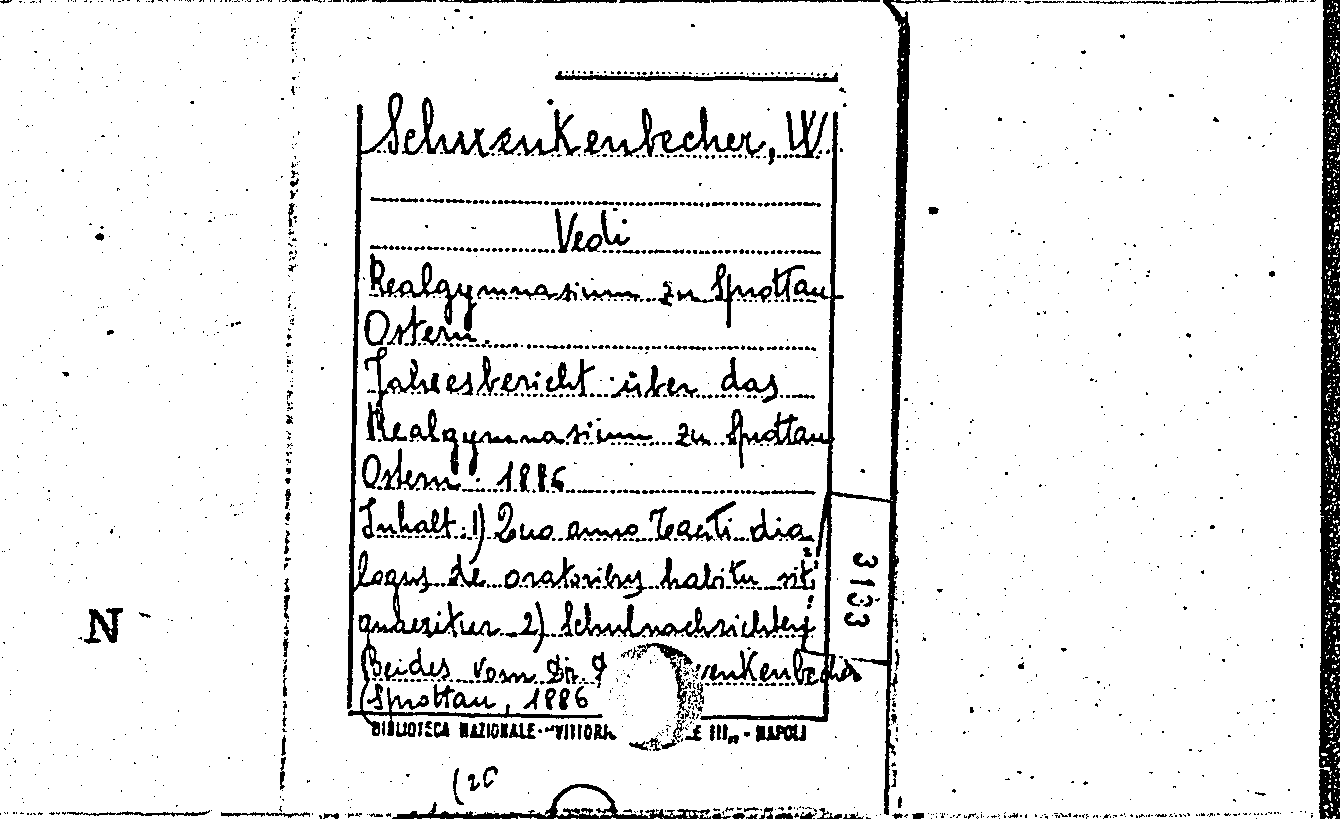 Schwenkenbecher, W.
Vedi
Realgymnasium zu Sprottau
Ostern.
Jahresbericht über das
Realgymnasium zu Sprottau
Ostern. 1886
Inhalt: 1) Quo anno Taciti dia
logus de oratoribus habitu sit
quaeritur 2) Schulnachrichten
Beides vom Dr. wenkenbecher
Sprottau, 1886
BIBLIOTECA NAZIONALE "VITTORI E III„ - NAPOLI
(20
3133
N